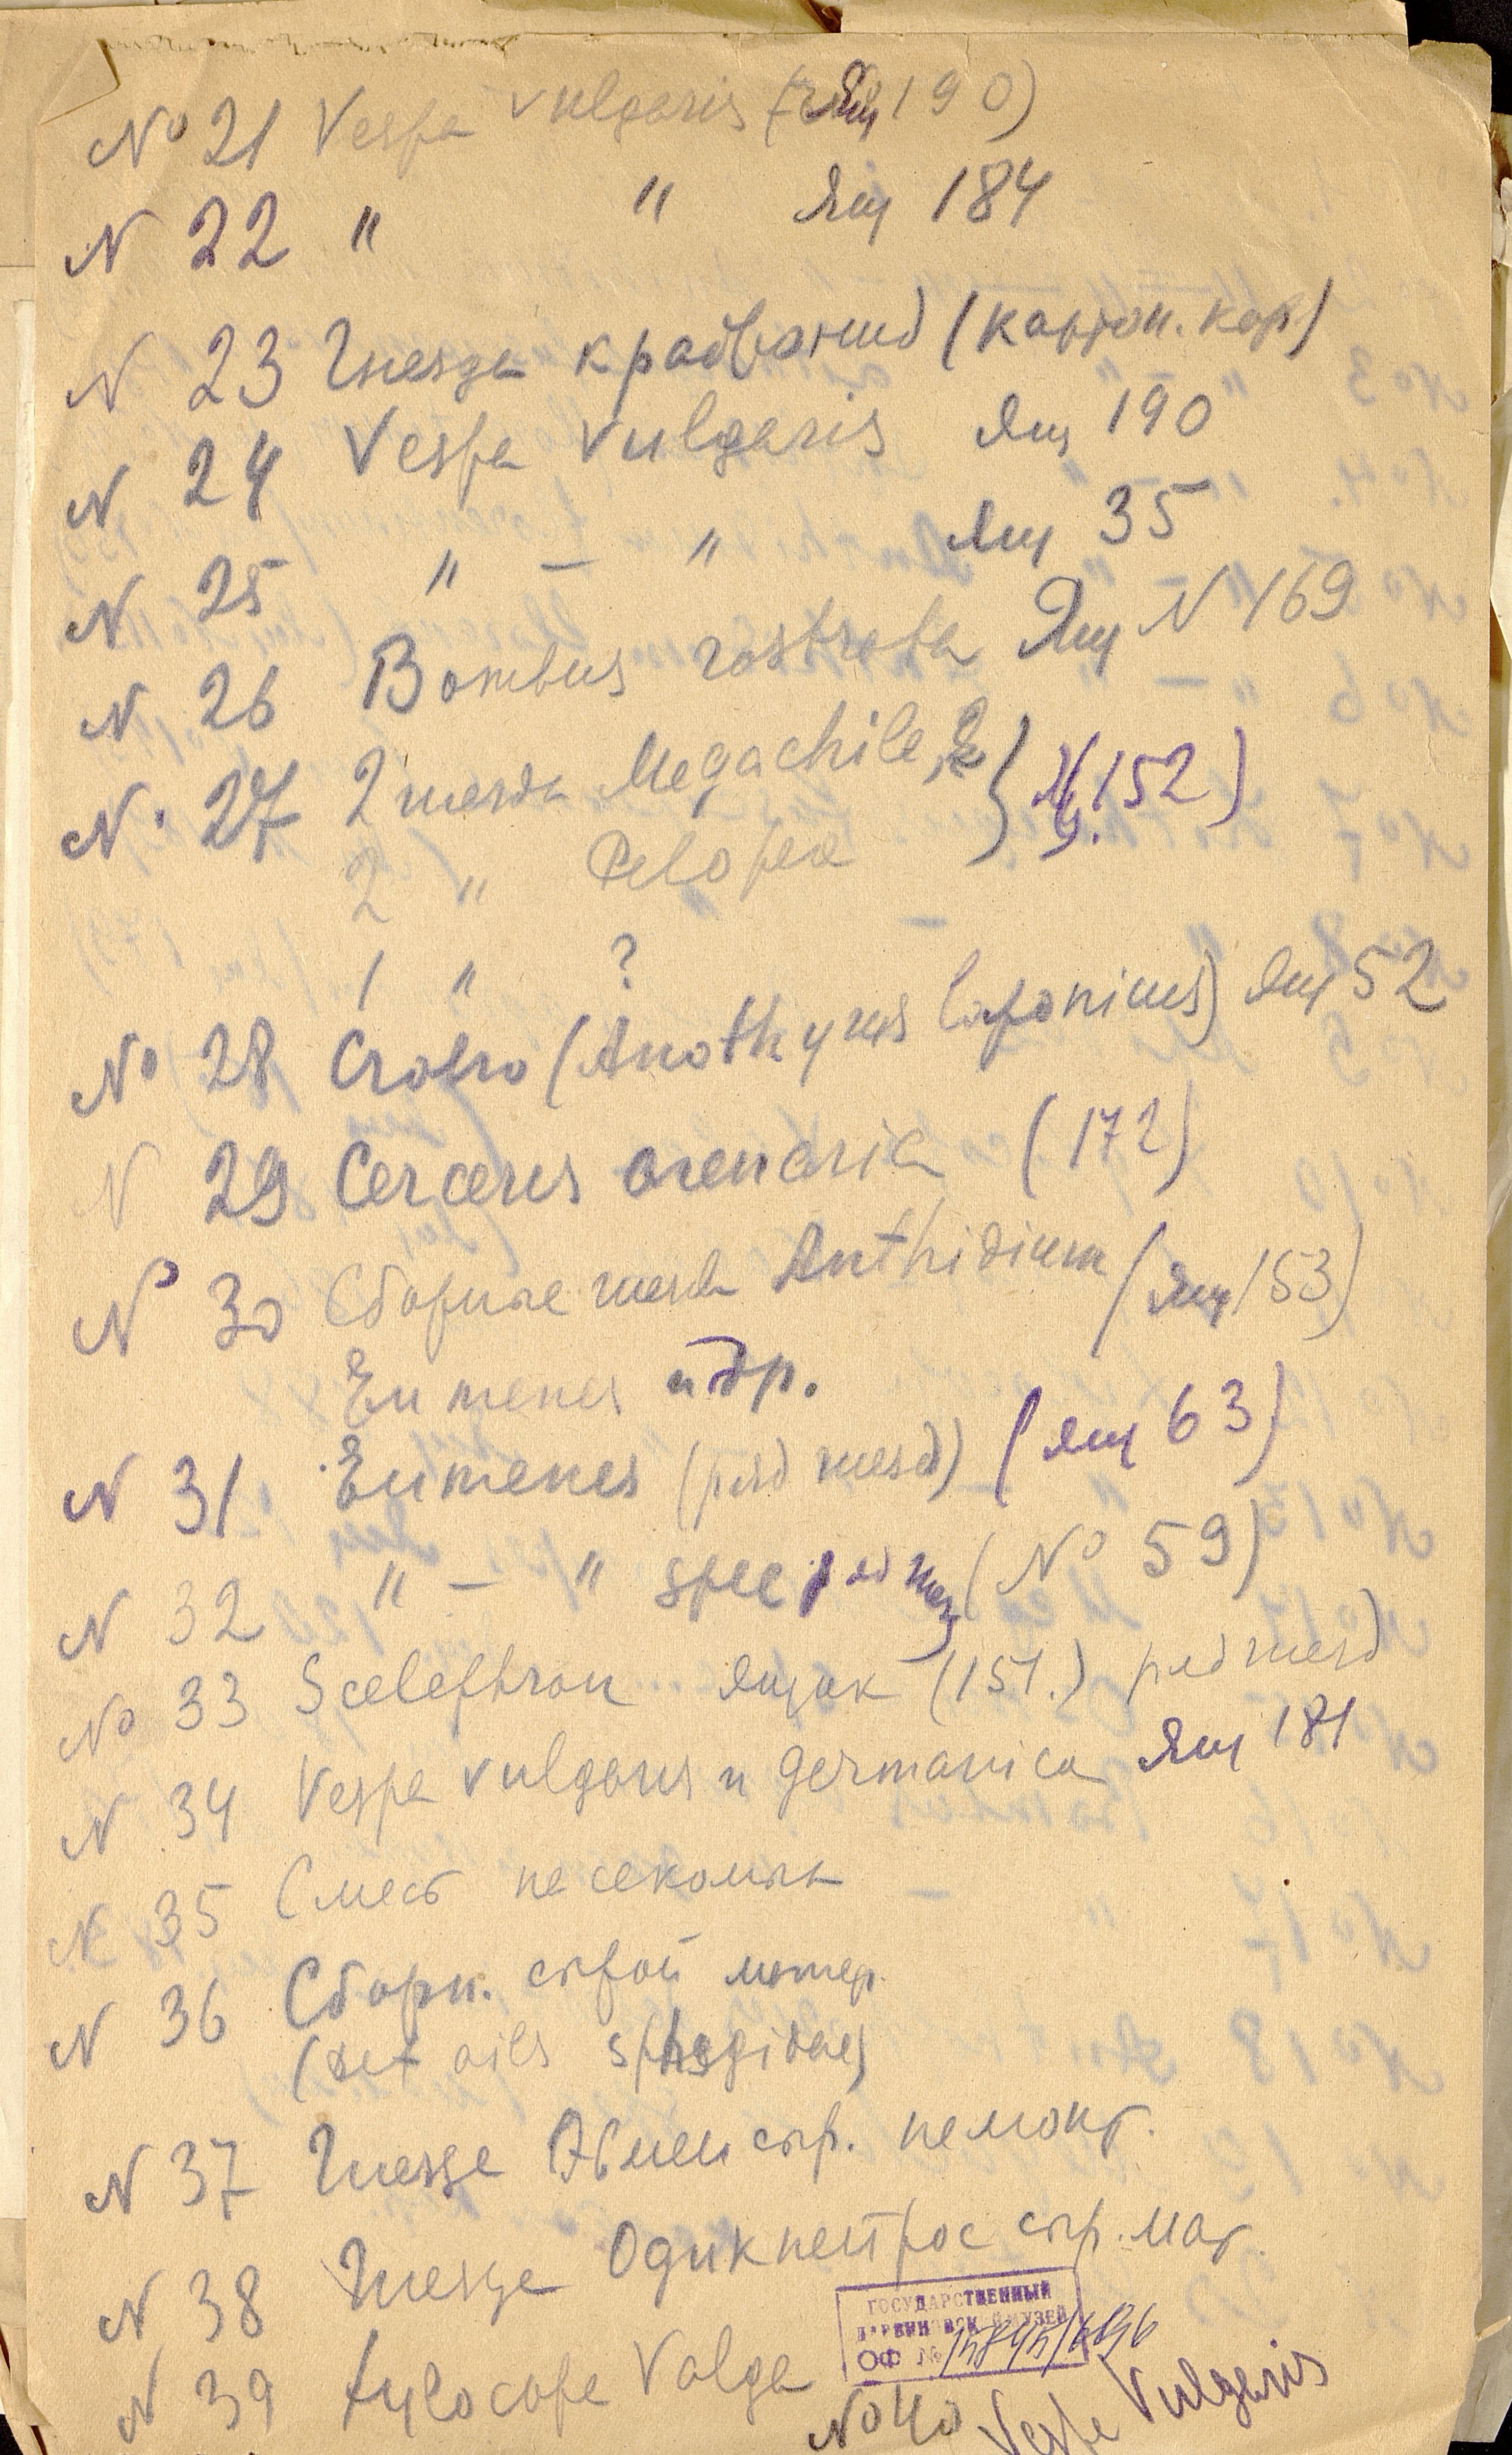 № 21 Vespa vulgaris (Ящ 190)
N 22 " " Ящ 184
N 23 Гнезда (картон. кор)
N 24 Vespa vulgaris Ящ 190
N 25 " — " Ящ 35
N 26 Bombus rostrata Ящ N 169
N. 27 2 гнезда Megachile,
2 " Pelopea } 152)
1 " ?
№ 28 Crabro (Anothyreus laponicus) Ящ 52
N 29 Cerceris arenaria (172)
№ 30 Сборные гнезда Anthidium (Ящ 153)
Eumenes и др.
N 31 Eumenes (ряд гнезд) (Ящ 63)
N 32 " — " spec ряд гнезд (№ 59)
№ 33 Scelephron ящик (151.) ряд гнезд
N 34 Vespa vulgaris и germanica Ящ 181
N 35 Смесь насекомых
N 36 Сборн. сырой матер.
(det ails sphegidae)
N 37 Гнезда Эвмен сыр. немонт.
N 38 Гнезда Одинкнетрос сыр. мат.
N 39 Xylocopa Valga
ГОСУДАРСТВЕННЫЙ
ДАРВИНОВСКИЙ МУЗЕЙ
ОФ №
№ 40 Vespa Vulgaris